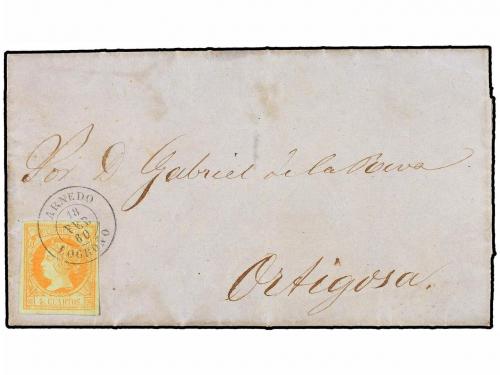 Por D Gabriel de la Riva
ARNEDO
18
FEB
60
LOGROÑO
4 CUARTOS
Ortigosa.